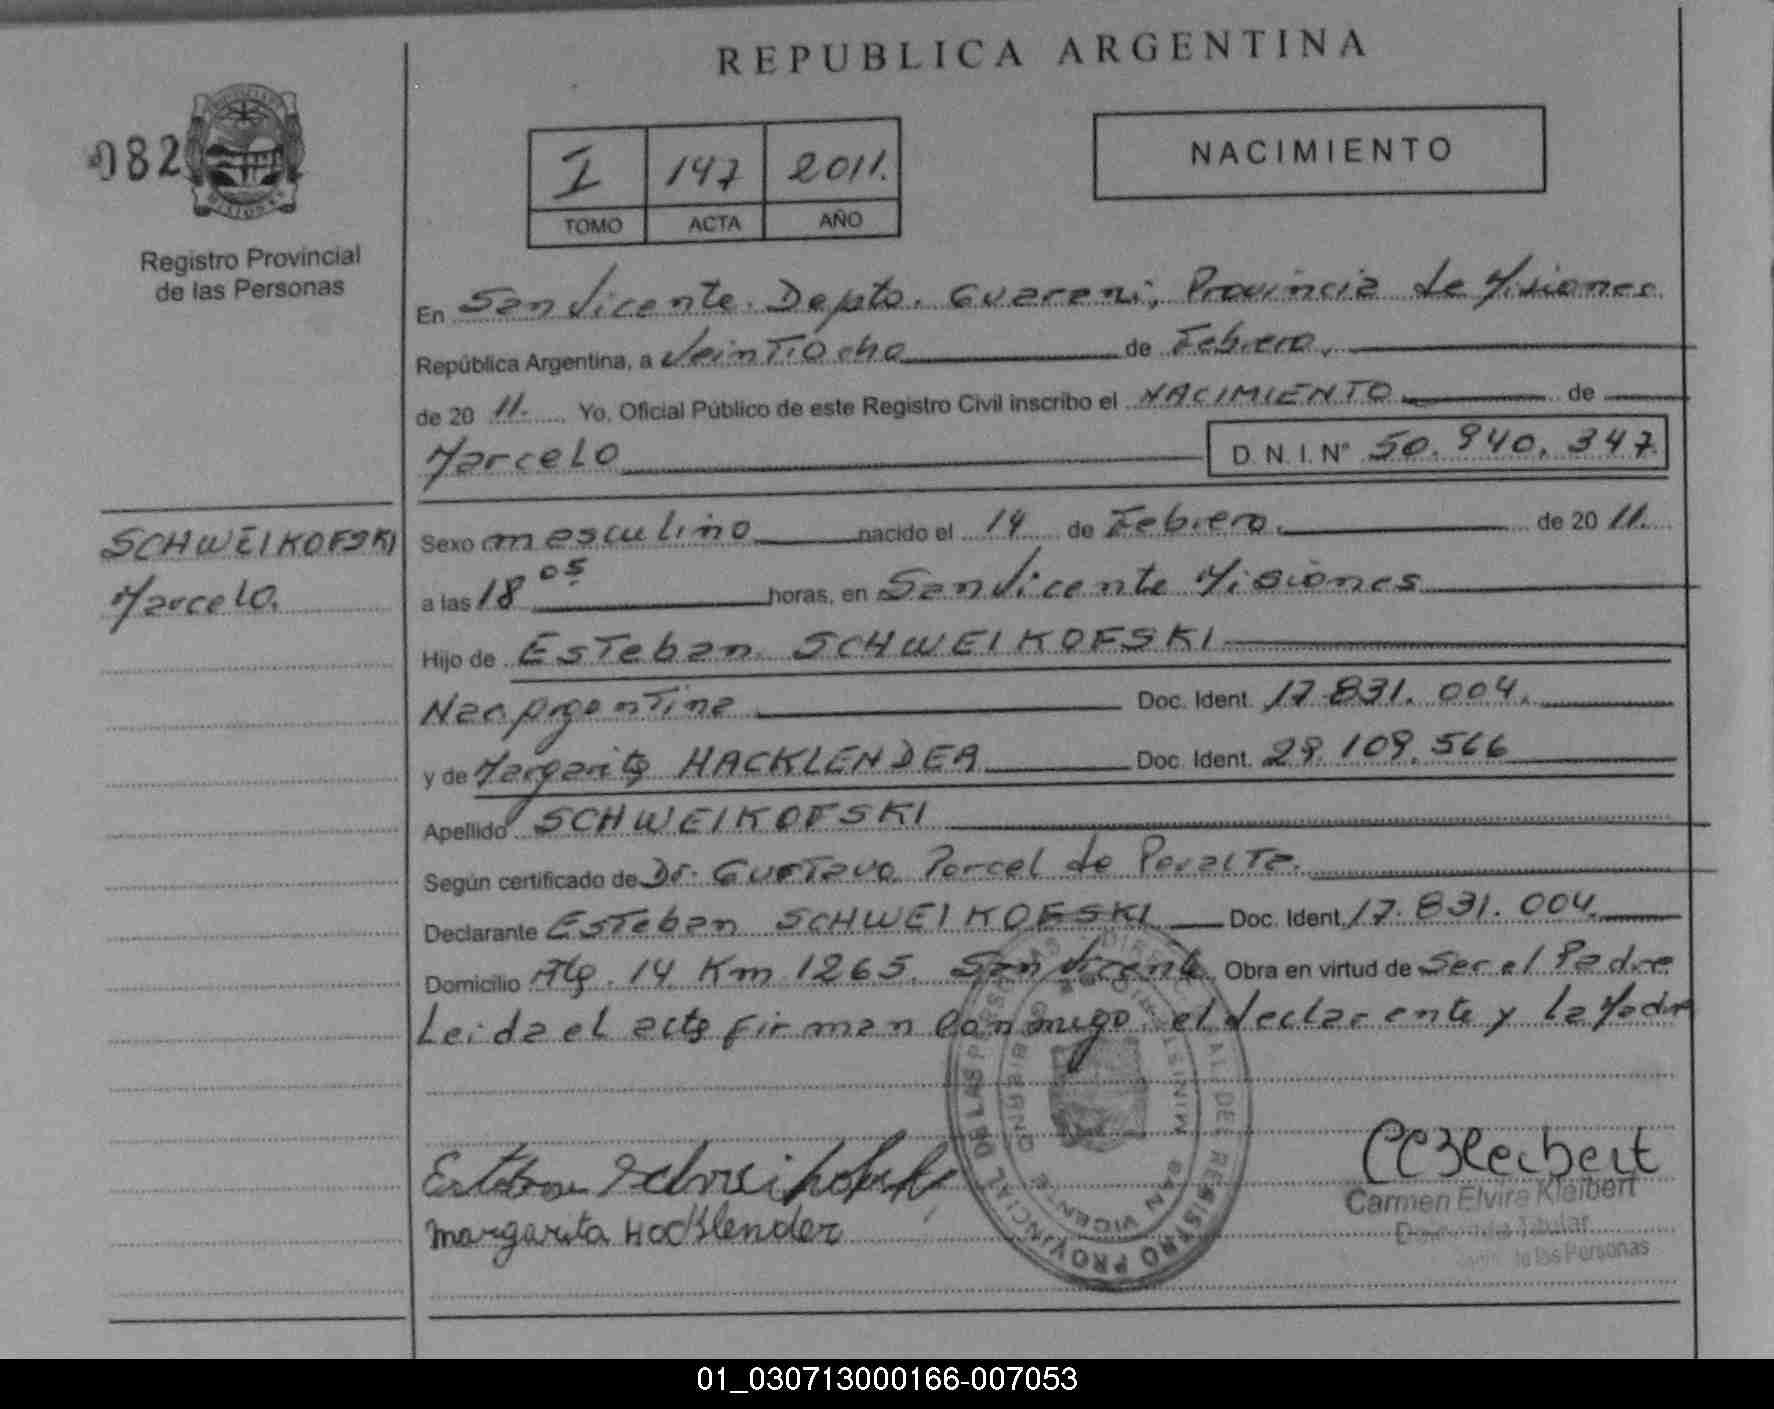 REPUBLICA ARGENTINA
082
MISIONES
Registro Provincial
de las Personas
I 147 2011.
TOMO ACTA AÑO
NACIMIENTO
En San Vicente. Depto. Guarani, Provincia de Misiones
República Argentina, a Veintiocho de Febrero.
de 20 11. Yo, Oficial Público de este Registro Civil inscribo el NACIMIENTO de
Marcelo D.N.I. N° 50.940.347.
SCHWEIKOFSKI
Marcelo.
Sexo masculino nacido el 14 de Febrero. de 20 11.
a las 18 05 horas, en San Vicente Misiones
Hijo de Esteban SCHWEIKOFSKI
Nac. Argentina Doc. Ident. 17.831.004.
y de Margarita HACKLENDER Doc. Ident. 29.109.566
Apellido SCHWEIKOFSKI
Según certificado de Dr. Gustavo Porcel de Peralta.
Declarante Esteban SCHWEIKOFSKI Doc. Ident. 17.831.004.
Domicilio Rta. 14 Km 1265. San Vicente. Obra en virtud de Ser el Padre
Leida el acta firman conmigo el declarante y la Madre
REGISTRO PROVINCIAL DE LAS PERSONAS
SAN VICENTE
CCKleibert
Carmen Elvira Kleibert
Titular
de las Personas
Esteban Schweikofski
Margarita Hacklender
01_030713000166-007053